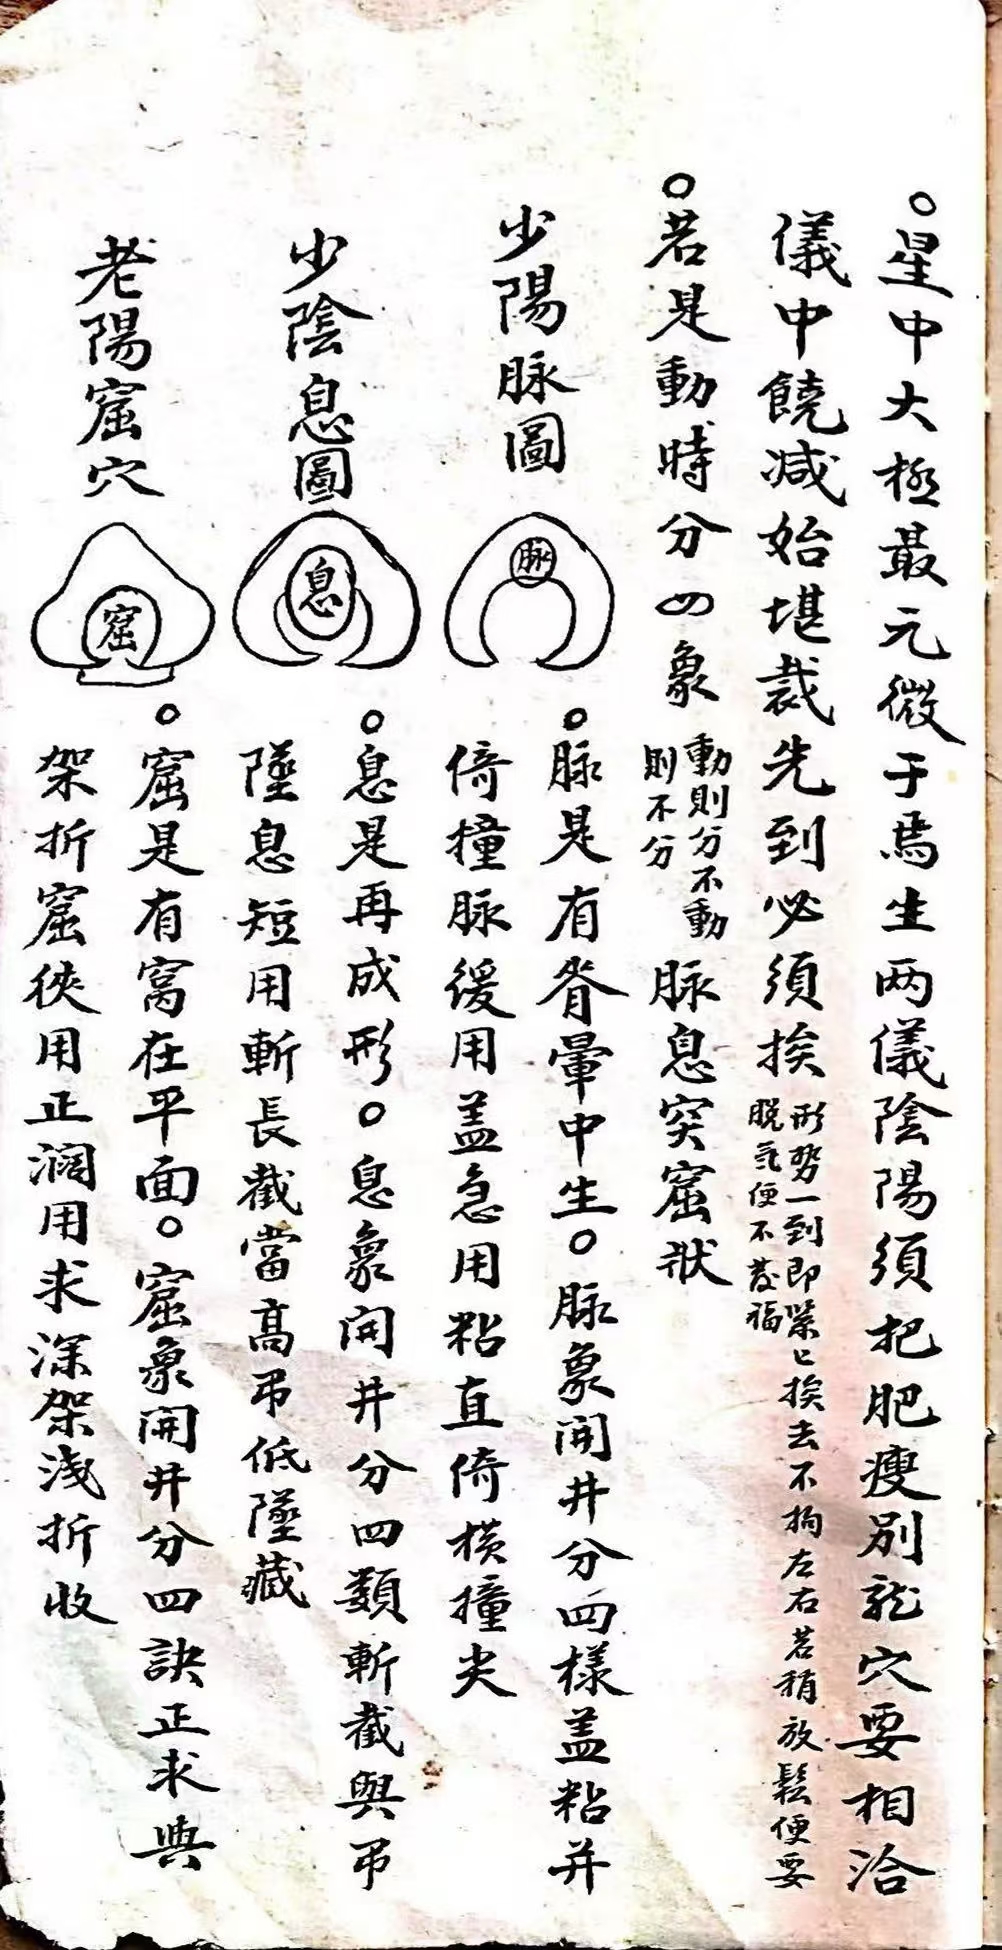 ○星中大極最元微于焉生两儀陰陽須把肥瘦別龍穴要相洽
儀中饒减始堪裁先到必須挨
形势一到即紧〻挨去不拘左右若稍放鬆便要
脱氣便不發福
○若是動時分四象
動則分不動
則不分
脉息突窟状
少陽脉圖
脉
○脉是有脊暈中生○脉象開井分四樣盖粘并
倚撞脉緩用盖急用粘直倚横撞尖
少陰息圖
息
○息是再成形○息象開井分四類斬截與吊
墜息短用斬長截當高吊低墜藏
老陽窟穴
窟
○窟是有窝在平面○窟象開井分四訣正求與
架折窟狹用正濶用求深架浅折收